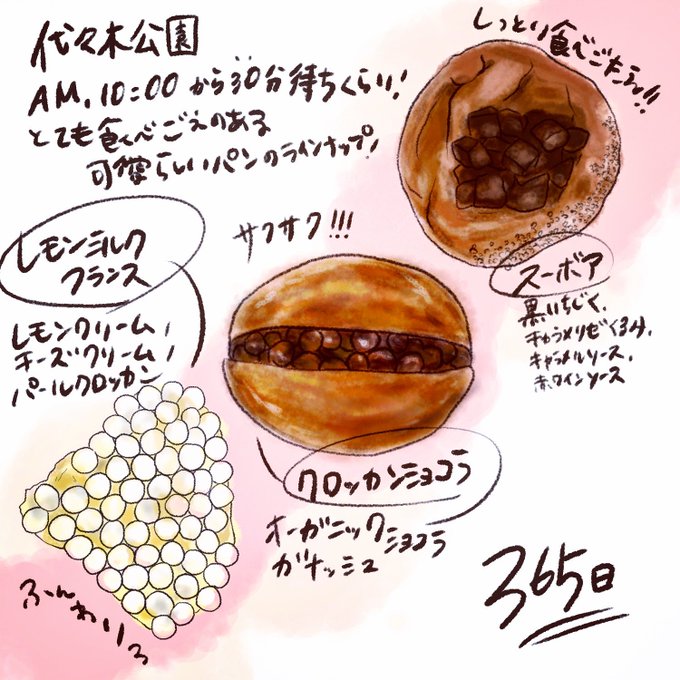 代々木公園
AM.10:00から30分待ちくらい!
とても食べごたえのある
可愛らしいパンのラインナップ!
しっとり食べごたえ!!
スーボア
黒いちじく、
キャラメリゼくるみ、
キャラメルソース、
赤ワインソース
レモンミルク
フランス
レモンクリーム、
チーズクリーム、
パールクロッカン
サクサク!!!
クロッカンショコラ
オーガニックショコラ
ガナッシュ
ふんわり
365日